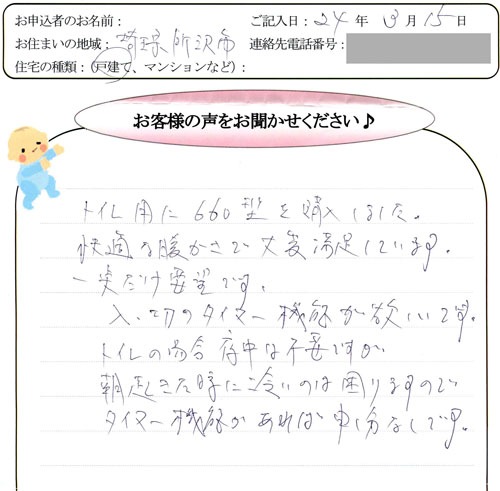 お申込者のお名前： ご記入日：24年3月15日
お住まいの地域：埼玉県所沢市 連絡先電話番号：
住宅の種類：（戸建て、マンションなど）：
お客様の声をお聞かせください♪
トイレ用に660型を購入しました。
快適な暖かさで大変満足しています。
一点だけ要望です。
入・切のタイマー機能が欲しいです。
トイレの場合夜中は不要ですが
朝起きた時に冷いのは困りますので
タイマー機能があれば申し分なしです。